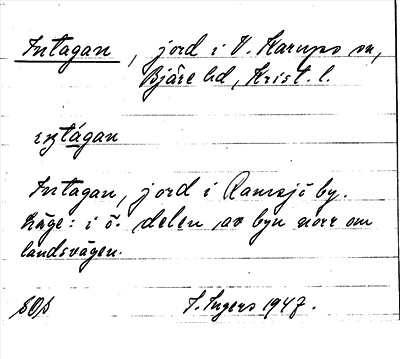 Intagan, jord i V. Karups sn,
Bjäre hd, Krist. l.
Intagan, jord i Ramsjö by.
Läge: i ö. delen av byn norr om
landsvägen.
S. Ingers 1947.